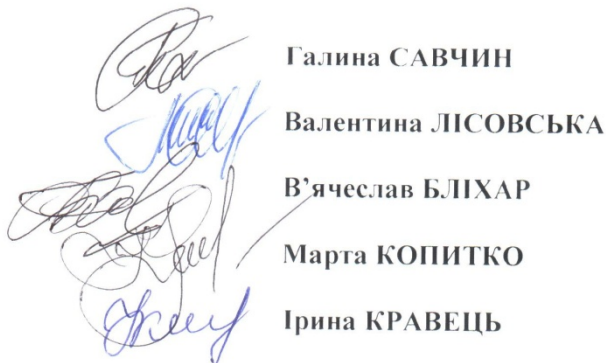 Галина САВЧИН
Валентина ЛІСОВСЬКА
В’ячеслав БЛІХАР
Марта КОПИТКО
Ірина КРАВЕЦЬ